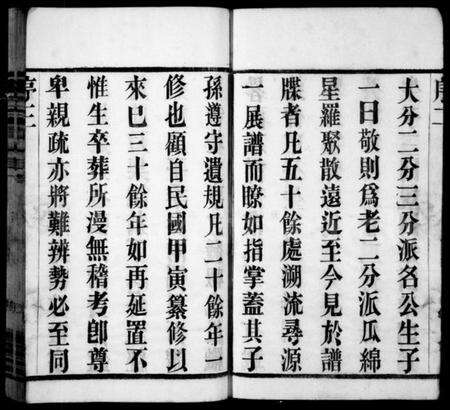 大分二分三分派名公生子
一曰敬則爲老二分派瓜綿
星羅聚散遠近至今見於譜
牒者凡五十餘處溯流尋源
一展譜而瞭如指掌蓋其子
孫遵守遺規凡二十餘年一
修也顧自民國甲寅纂修以
來已三十餘年如再延置不
惟生卒葬所漫無稽考卽尊
卑親疏亦將難辨勢必至同
序三